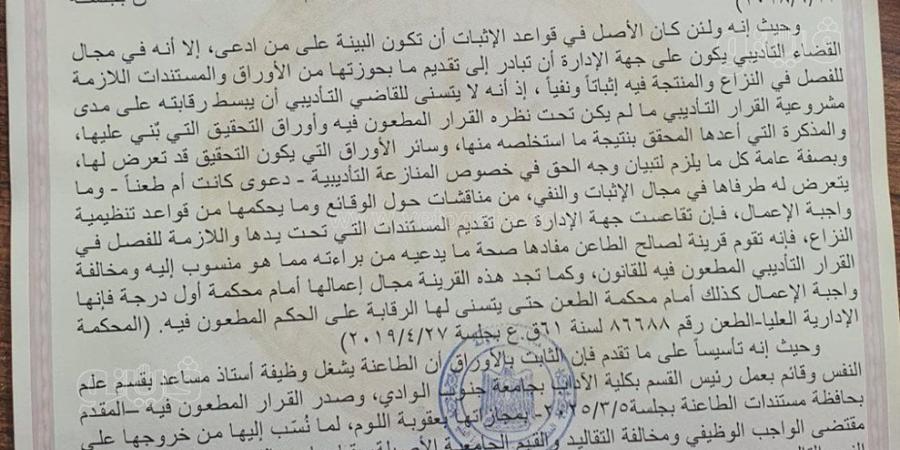 وحيث إنه ولئن كان الأصل في قواعد الإثبات أن تكون البينة على من ادعى، إلا أنه في مجال
القضاء التأديبي يكون على جهة الإدارة أن تبادر إلى تقديم ما بحوزتها من الأوراق والمستندات اللازمة
للفصل في النزاع والمنتجة فيه إثباتاً ونفياً ، إذ أنه لا يتسنى للقاضي التأديبي أن يبسط رقابته على مدى
مشروعية القرار التأديبي ما لم يكن تحت نظره القرار المطعون فيه وأوراق التحقيق التي بُني عليها،
والمذكرة التي أعدها المحقق بنتيجة ما استخلصه منها، وسائر الأوراق التي يكون التحقيق قد تعرض لها،
وبصفة عامة كل ما يلزم لتبيان وجه الحق في خصوص المنازعة التأديبية - دعوى كانت أم طعناً - وما
يتعرض له طرفاها في مجال الإثبات والنفي، من مناقشات حول الوقائع وما يحكمها من قواعد تنظيمية
واجبة الإعمال، فإن تقاعست جهة الإدارة عن تقديم المستندات التي تحت يدها واللازمة للفصل في
النزاع، فإنه تقوم قرينة لصالح الطاعن مفادها صحة ما يدعيه من براءته مما هو منسوب إليه ومخالفة
القرار التأديبي المطعون فيه للقانون، وكما تجد هذه القرينة مجال إعمالها أمام محكمة أول درجة فإنها
واجبة الإعمال كذلك أمام محكمة الطعن حتى يتسنى لها الرقابة على الحكم المطعون فيه. (المحكمة
الإدارية العليا-الطعن رقم ٨٦٦٨٨ لسنة ٦١ق.ع بجلسة ٢٠١٩/٤/٢٧)
وحيث إنه تأسيساً على ما تقدم فإن الثابت بالأوراق أن الطاعنة يشغل وظيفة أستاذ مساعد بقسم علم
النفس وقائم بعمل رئيس القسم بكلية الآداب بجامعة جنوب الوادي، وصدر القرار المطعون فيه -المقدم
بحافظة مستندات الطاعنة بجلسة ٢٠٢٥/٣/٥- بمجازاتها بعقوبة اللوم، لما نُسب إليها من خروجها على
مقتضى الواجب الوظيفي ومخالفة التقاليد والقيم الجامعية